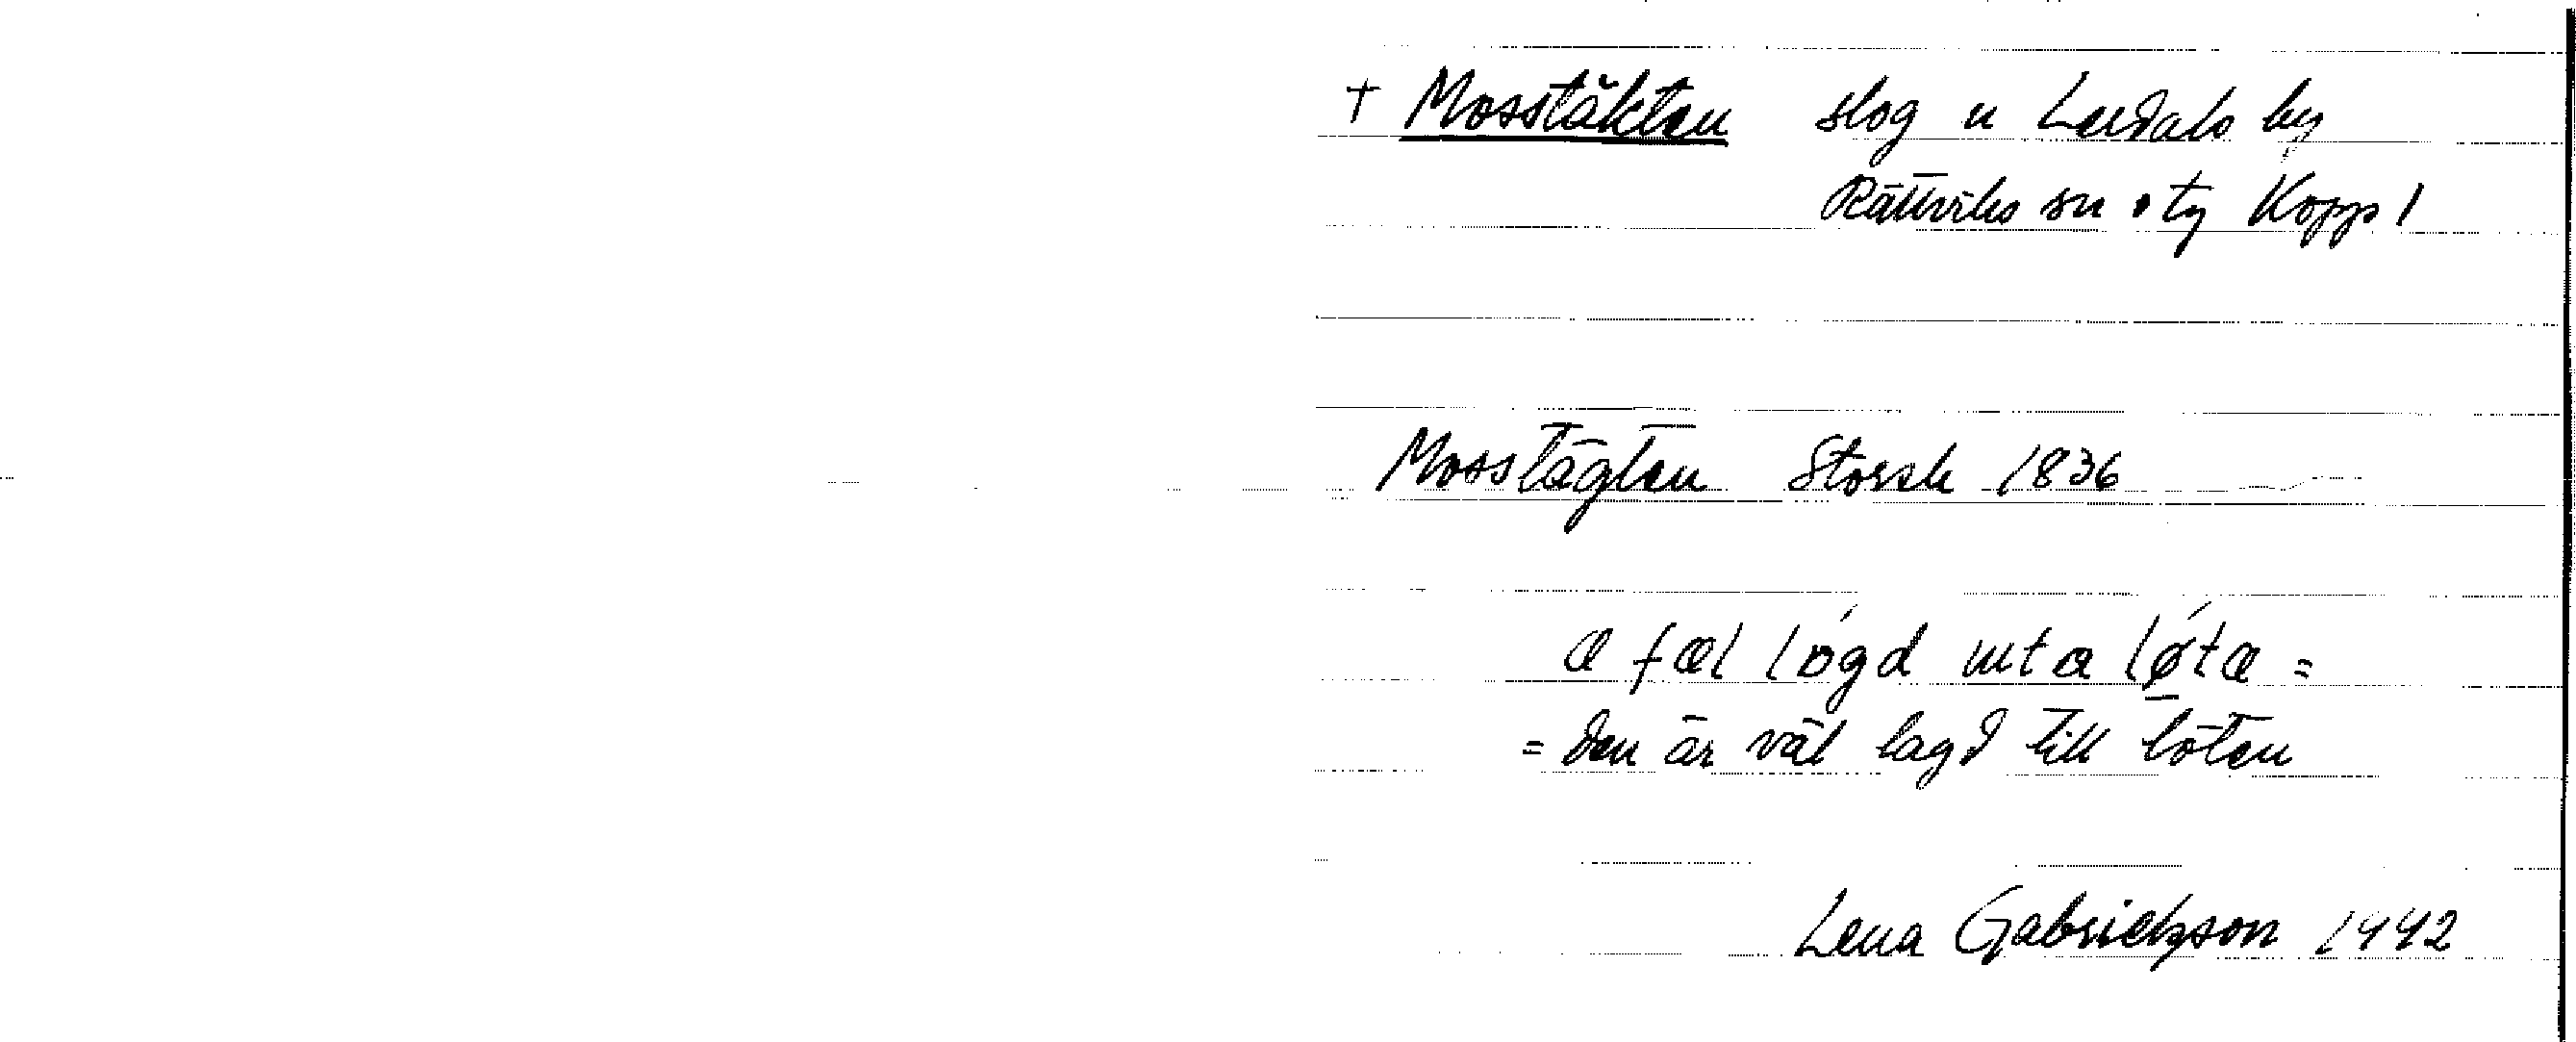 + Mosstäkten slog u Lerdals by
Rättviks sn o tg Kopp l
Mosstägten Storsk 1836
æ fæl lógd ut a lǿtæ =
= den är väl lagd till löten
Lena Gabrielsson 1942